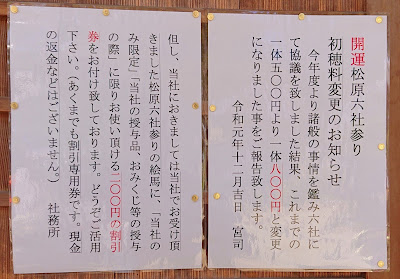 開運松原六社参り
初穂料変更のお知らせ
今年度より諸般の事情を鑑み六社に
て協議を致しました結果、これまでの
一体五〇〇円より一体八〇〇円と変更
になりました事をご報告致します。
令和元年十二月吉日　宮司
但し、当社におきましては当社でお受け頂
きました松原六社参りの絵馬に、「当社の
み限定」「当社の授与品　おみくじ等の授与
の際」に限りお使い頂ける二〇〇円の割引
券をお付け致しております。どうぞご活用
下さい。（あくまでも割引専用券です。現金
の返金などはございません。）　社務所